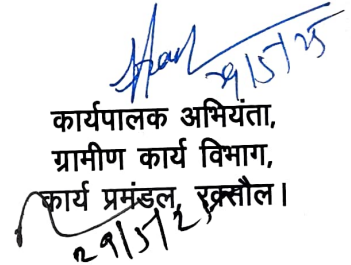 29/5/25
कार्यपालक अभियंता,
ग्रामीण कार्य विभाग,
कार्य प्रमंडल, रक्सौल।
29/5/25